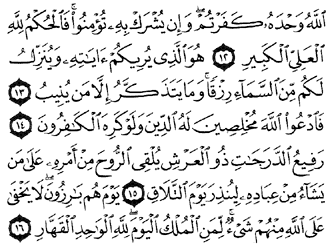 ٱللَّهُ وَحْدَهُۥ كَفَرْتُمْ وَإِن يُشْرَكْ بِهِۦ تُؤْمِنُوا۟ فَٱلْحُكْمُ لِلَّهِ
ٱلْعَلِىِّ ٱلْكَبِيرِ ١٢ هُوَ ٱلَّذِى يُرِيكُمْ ءَايَـٰتِهِۦ وَيُنَزِّلُ
لَكُم مِّنَ ٱلسَّمَآءِ رِزْقًا وَمَا يَتَذَكَّرُ إِلَّا مَن يُنِيبُ ١٣
فَٱدْعُوا۟ ٱللَّهَ مُخْلِصِينَ لَهُ ٱلدِّينَ وَلَوْ كَرِهَ ٱلْكَـٰفِرُونَ ١٤
رَفِيعُ ٱلدَّرَجَـٰتِ ذُو ٱلْعَرْشِ يُلْقِى ٱلرُّوحَ مِنْ أَمْرِهِۦ عَلَىٰ مَن
يَشَآءُ مِنْ عِبَادِهِۦ لِيُنذِرَ يَوْمَ ٱلتَّلَاقِ ١٥ يَوْمَ هُم بَـٰرِزُونَ لَا يَخْفَىٰ
عَلَى ٱللَّهِ مِنْهُمْ شَىْءٌ لِّمَنِ ٱلْمُلْكُ ٱلْيَوْمَ لِلَّهِ ٱلْوَٰحِدِ ٱلْقَهَّارِ ١٦